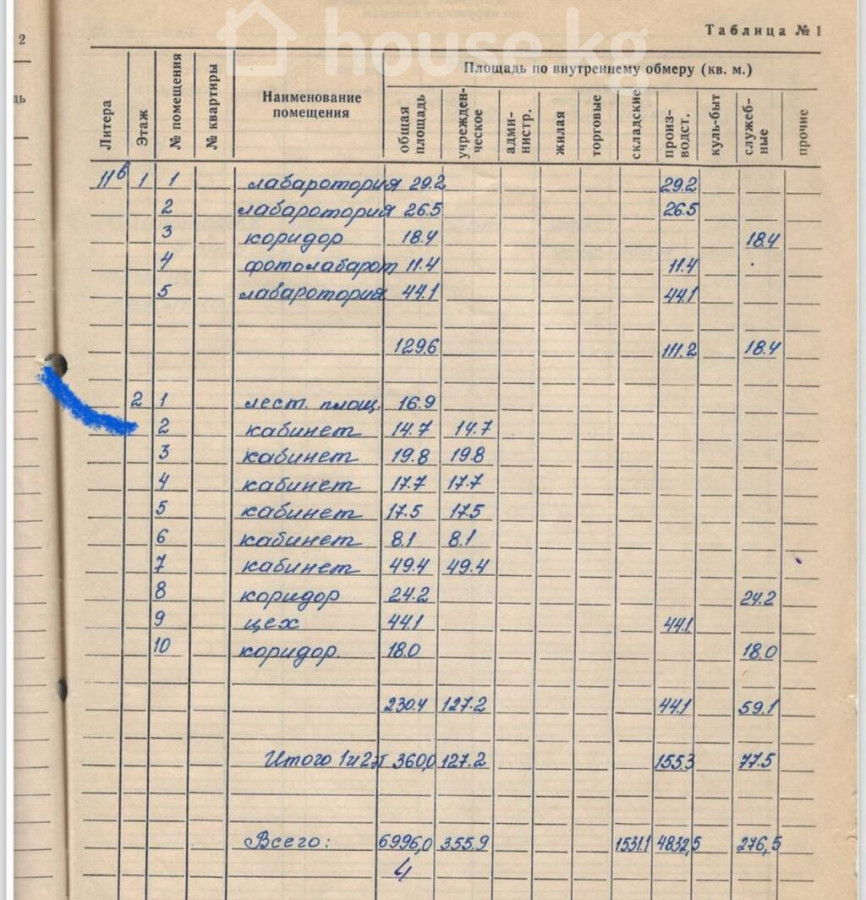 house.kg
2
Таблица № 1
Литера
Этаж
№ помещения
№ квартиры
Наименование помещения
Площадь по внутреннему обмеру (кв. м.)
общая площадь
учрежден-ческое
адми-нистр.
жилая
торговые
складские
произ-водст.
куль-быт
служеб-ные
прочие
11б 1 1 лабаротория 29.2 29.2
2 лабаротория 26.5 26.5
3 коридор 18.4 18.4
4 фотолабарот 11.4 11.4
5 лабаротория 44.1 44.1
129.6 111.2 18.4
2 1 лест. площ. 16.9
2 кабинет 14.7 14.7
3 кабинет 19.8 19.8
4 кабинет 17.7 17.7
5 кабинет 17.5 17.5
6 кабинет 8.1 8.1
7 кабинет 49.4 49.4
8 коридор 24.2 24.2
9 цех 44.1 44.1
10 коридор. 18.0 18.0
230.4 127.2 44.1 59.1
Итого 1и2эт 360,0 127.2 155.3 77.5
Всего: 6996,0 355.9 1531.1 4832,5 276,5
4